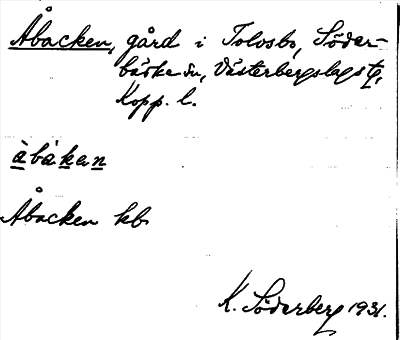 Åbacken, gård i Tolvsbo, Söder-
bärke sn, Västerbergslags tg,
Kopp. l.
àbàken
Åbacken kb
K. Söderberg 1931.